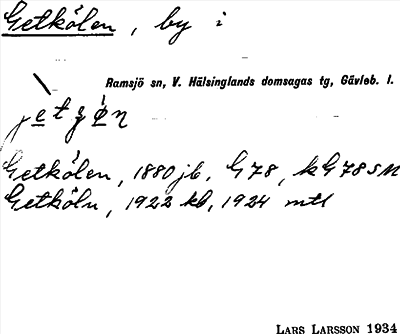 Getkölen, by i
Ramsjö sn, V. Hälsinglands domsagas tg, Gävleb. l.
Getkölen, 1880 jb, G78, kG78SM
Getköln, 1922 kb, 1924 mtl
LARS LARSSON 1934